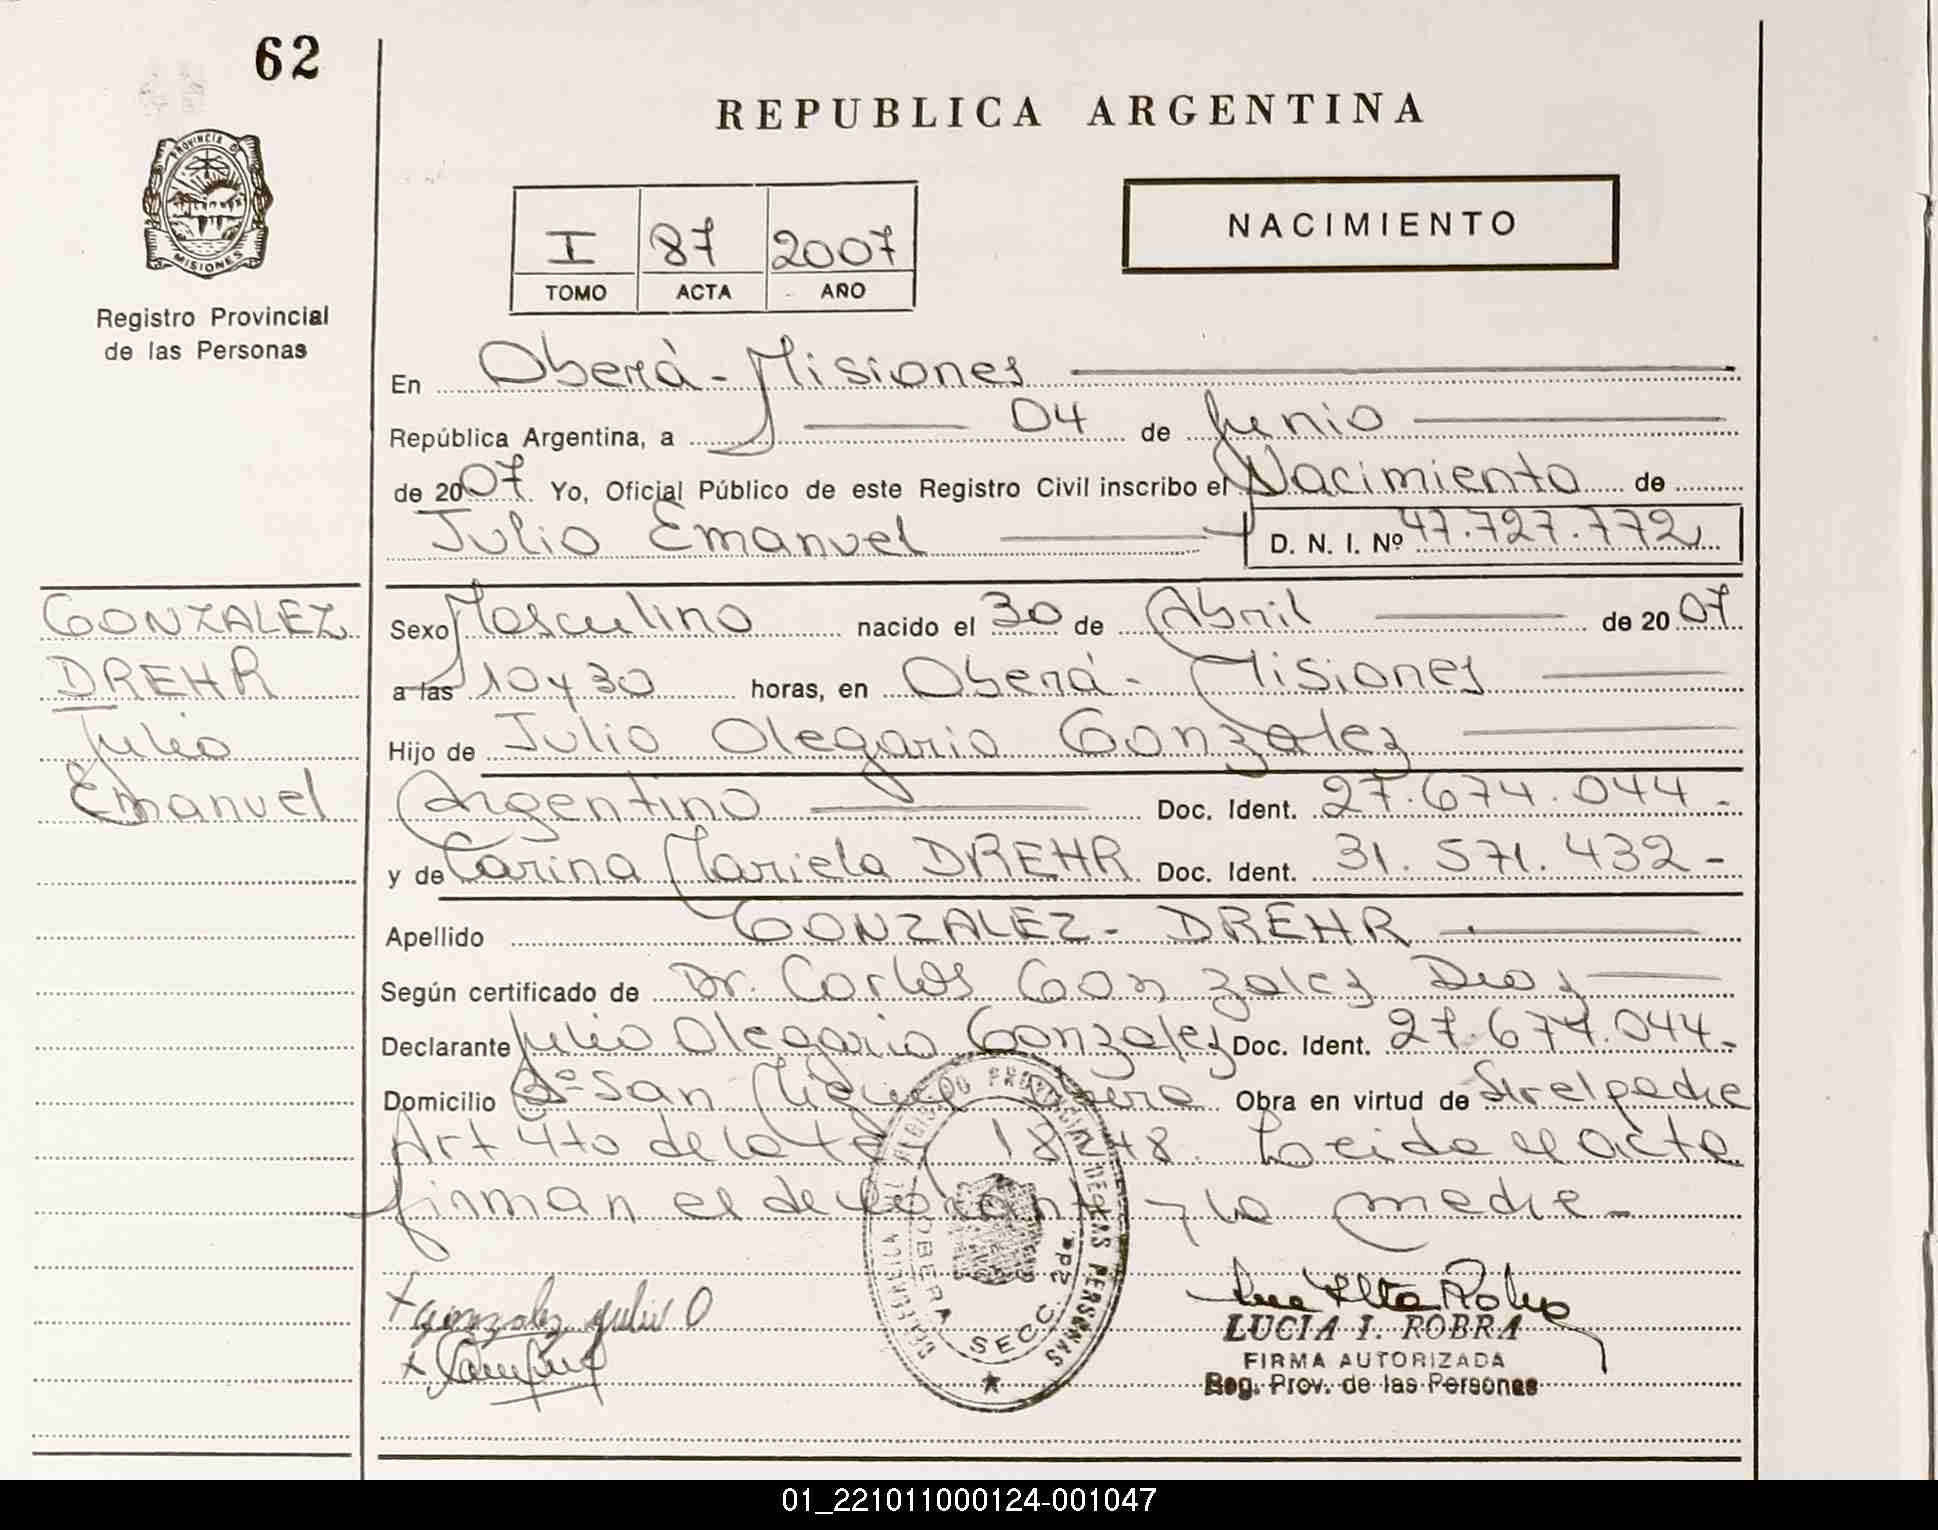 62
REPUBLICA ARGENTINA
PROVINCIA D
MISIONES
Registro Provincial
de las Personas
NACIMIENTO
I 87 2007
TOMO ACTA AÑO
En Oberá - Misiones
República Argentina, a 04 de Junio
de 2007 Yo, Oficial Público de este Registro Civil inscribo el Nacimiento de
Julio Emanuel D. N. I. Nº 47.727.772
GONZALEZ
DREHR
Julio
Emanuel
Sexo Masculino nacido el 30 de Abril de 2007
a las 10 y 30 horas, en Oberá - Misiones
Hijo de Julio Olegario Gonzalez
Argentino Doc. Ident. 27.674.044 -
y de Carina Mariela DREHR Doc. Ident. 31.571.432 -
Apellido GONZALEZ - DREHR
Según certificado de Dr. Carlos Gonzalez
Declarante Julio Olegario Gonzalez Doc. Ident. 27.674.044 -
Domicilio Bº San Miguel Obera Obra en virtud de Ser el padre
Art 4to de la 18248. Leida el acta
firman el declarante y la madre -
Gonzalez Julio O
REGISTRO PROVINCIAL DE LAS PERSONAS
OBERA SECC. 2da.
LUCIA I. ROBRA
FIRMA AUTORIZADA
Reg. Prov. de las Personas
01_221011000124-001047